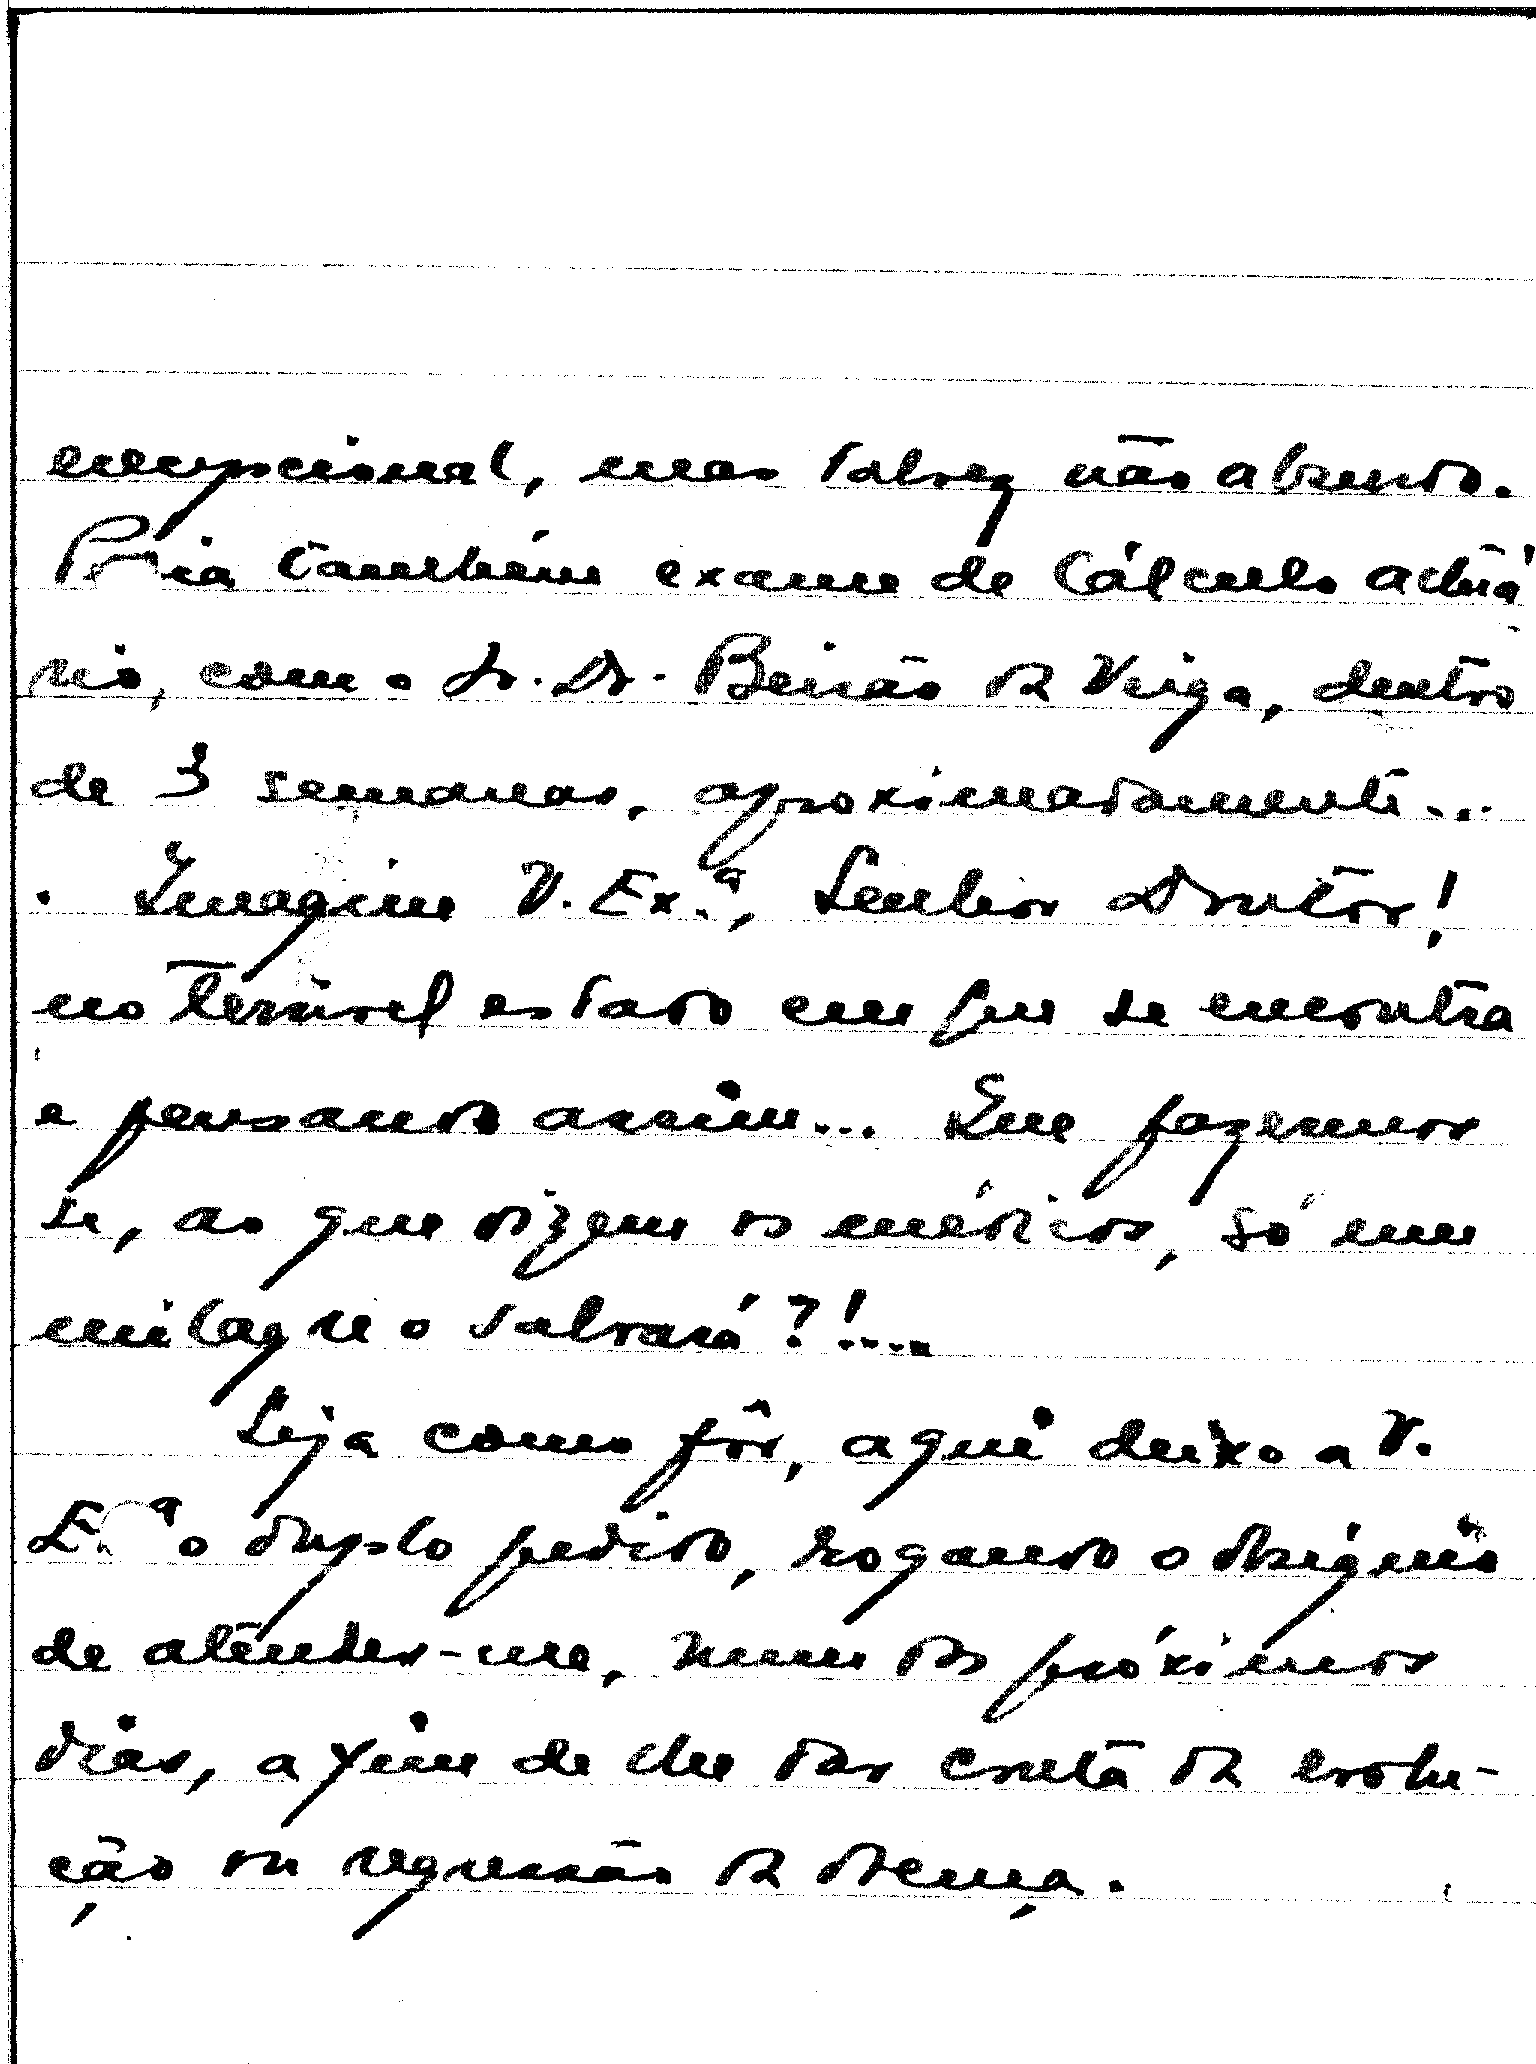 excepcional, mas talvez não absurdo.
Faria também exame de Cálculo actuá
rio, com o Sr. Dr. Beirão da Veiga, dentro
de 3 semanas, aproximadamente...
. Imagine V. Ex.ª, Senhor Doutor!
no terrível estado em que se encontra
e pensando assim... Que fazemos
se, ao que dizem os médicos, só um
milagre o salvará?!....
Seja como fôr, aqui deixo a V.
Ex.ª o duplo pedido, rogando o obséquio
de atender-me, num dos próximos
dias, a fim de lhe dar conta da evolu-
ção ou regressão da doença.